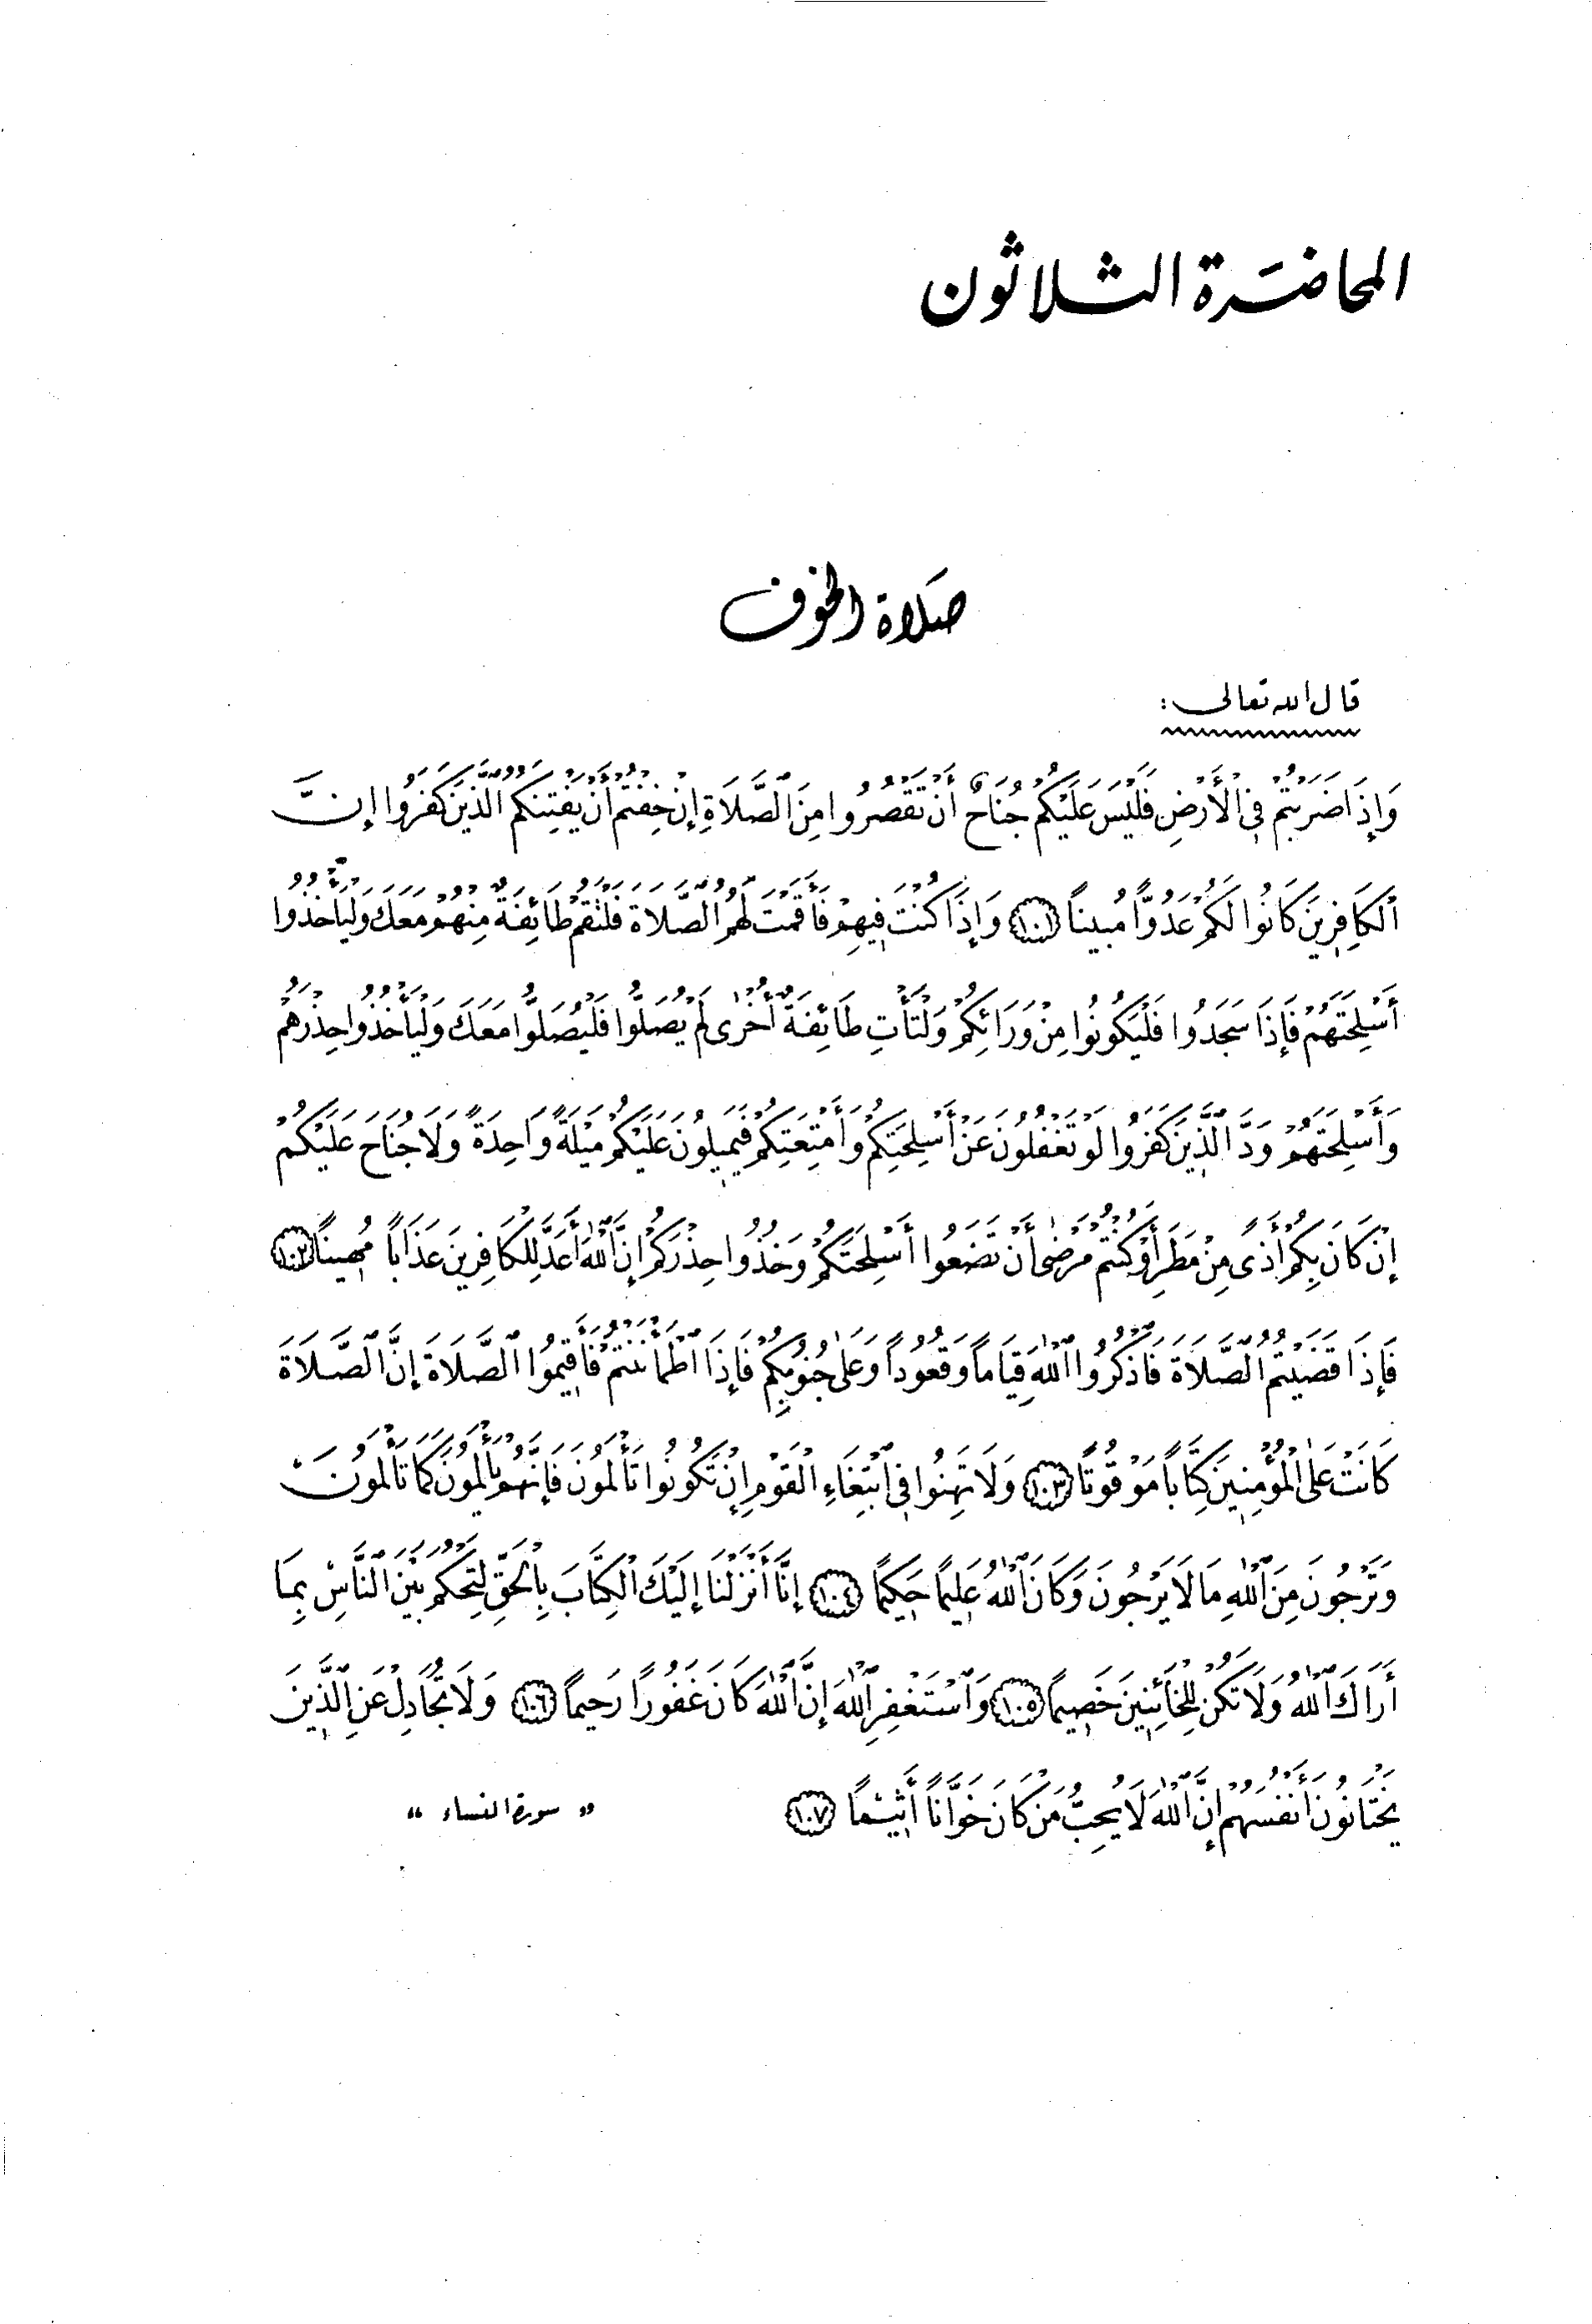 المحاضرة الثلاثون
صلاة الخوف
قال الله تعالى :
وَإِذَا ضَرَبْتُمْ فِي الْأَرْضِ فَلَيْسَ عَلَيْكُمْ جُنَاحٌ أَنْ تَقْصُرُوا مِنَ الصَّلَاةِ إِنْ خِفْتُمْ أَنْ يَفْتِنَكُمُ الَّذِينَ كَفَرُوا إِنَّ
الْكَافِرِينَ كَانُوا لَكُمْ عَدُوًّا مُبِينًا ﴿١٠١﴾ وَإِذَا كُنْتَ فِيهِمْ فَأَقَمْتَ لَهُمُ الصَّلَاةَ فَلْتَقُمْ طَائِفَةٌ مِنْهُمْ مَعَكَ وَلْيَأْخُذُوا
أَسْلِحَتَهُمْ فَإِذَا سَجَدُوا فَلْيَكُونُوا مِنْ وَرَائِكُمْ وَلْتَأْتِ طَائِفَةٌ أُخْرَى لَمْ يُصَلُّوا فَلْيُصَلُّوا مَعَكَ وَلْيَأْخُذُوا حِذْرَهُمْ
وَأَسْلِحَتَهُمْ وَدَّ الَّذِينَ كَفَرُوا لَوْ تَغْفُلُونَ عَنْ أَسْلِحَتِكُمْ وَأَمْتِعَتِكُمْ فَيَمِيلُونَ عَلَيْكُمْ مَيْلَةً وَاحِدَةً وَلَا جُنَاحَ عَلَيْكُمْ
إِنْ كَانَ بِكُمْ أَذًى مِنْ مَطَرٍ أَوْ كُنْتُمْ مَرْضَى أَنْ تَضَعُوا أَسْلِحَتَكُمْ وَخُذُوا حِذْرَكُمْ إِنَّ اللَّهَ أَعَدَّ لِلْكَافِرِينَ عَذَابًا مُهِينًا ﴿١٠٢﴾
فَإِذَا قَضَيْتُمُ الصَّلَاةَ فَاذْكُرُوا اللَّهَ قِيَامًا وَقُعُودًا وَعَلَى جُنُوبِكُمْ فَإِذَا اطْمَأْنَنْتُمْ فَأَقِيمُوا الصَّلَاةَ إِنَّ الصَّلَاةَ
كَانَتْ عَلَى الْمُؤْمِنِينَ كِتَابًا مَوْقُوتًا ﴿١٠٣﴾ وَلَا تَهِنُوا فِي ابْتِغَاءِ الْقَوْمِ إِنْ تَكُونُوا تَأْلَمُونَ فَإِنَّهُمْ يَأْلَمُونَ كَمَا تَأْلَمُونَ
وَتَرْجُونَ مِنَ اللَّهِ مَا لَا يَرْجُونَ وَكَانَ اللَّهُ عَلِيمًا حَكِيمًا ﴿١٠٤﴾ إِنَّا أَنْزَلْنَا إِلَيْكَ الْكِتَابَ بِالْحَقِّ لِتَحْكُمَ بَيْنَ النَّاسِ بِمَا
أَرَاكَ اللَّهُ وَلَا تَكُنْ لِلْخَائِنِينَ خَصِيمًا ﴿١٠٥﴾ وَاسْتَغْفِرِ اللَّهَ إِنَّ اللَّهَ كَانَ غَفُورًا رَحِيمًا ﴿١٠٦﴾ وَلَا تُجَادِلْ عَنِ الَّذِينَ
يَخْتَانُونَ أَنْفُسَهُمْ إِنَّ اللَّهَ لَا يُحِبُّ مَنْ كَانَ خَوَّانًا أَثِيمًا ﴿١٠٧﴾ « سورة النساء »